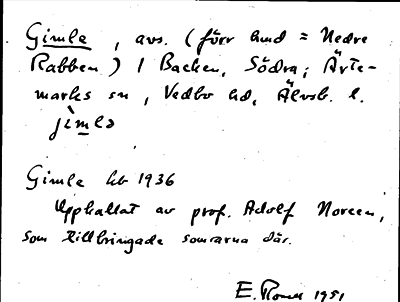 Gimle, avs. (förr kund = Nedre
Rabben) / Backen, Södra; Ärte-
marks sn, Vedbo hd, Älvsb. l.
jìmlə
Gimle kb 1936
Upphallat av prof. Adolf Noreen,
som tillbringade somrarna där.
E. 1951